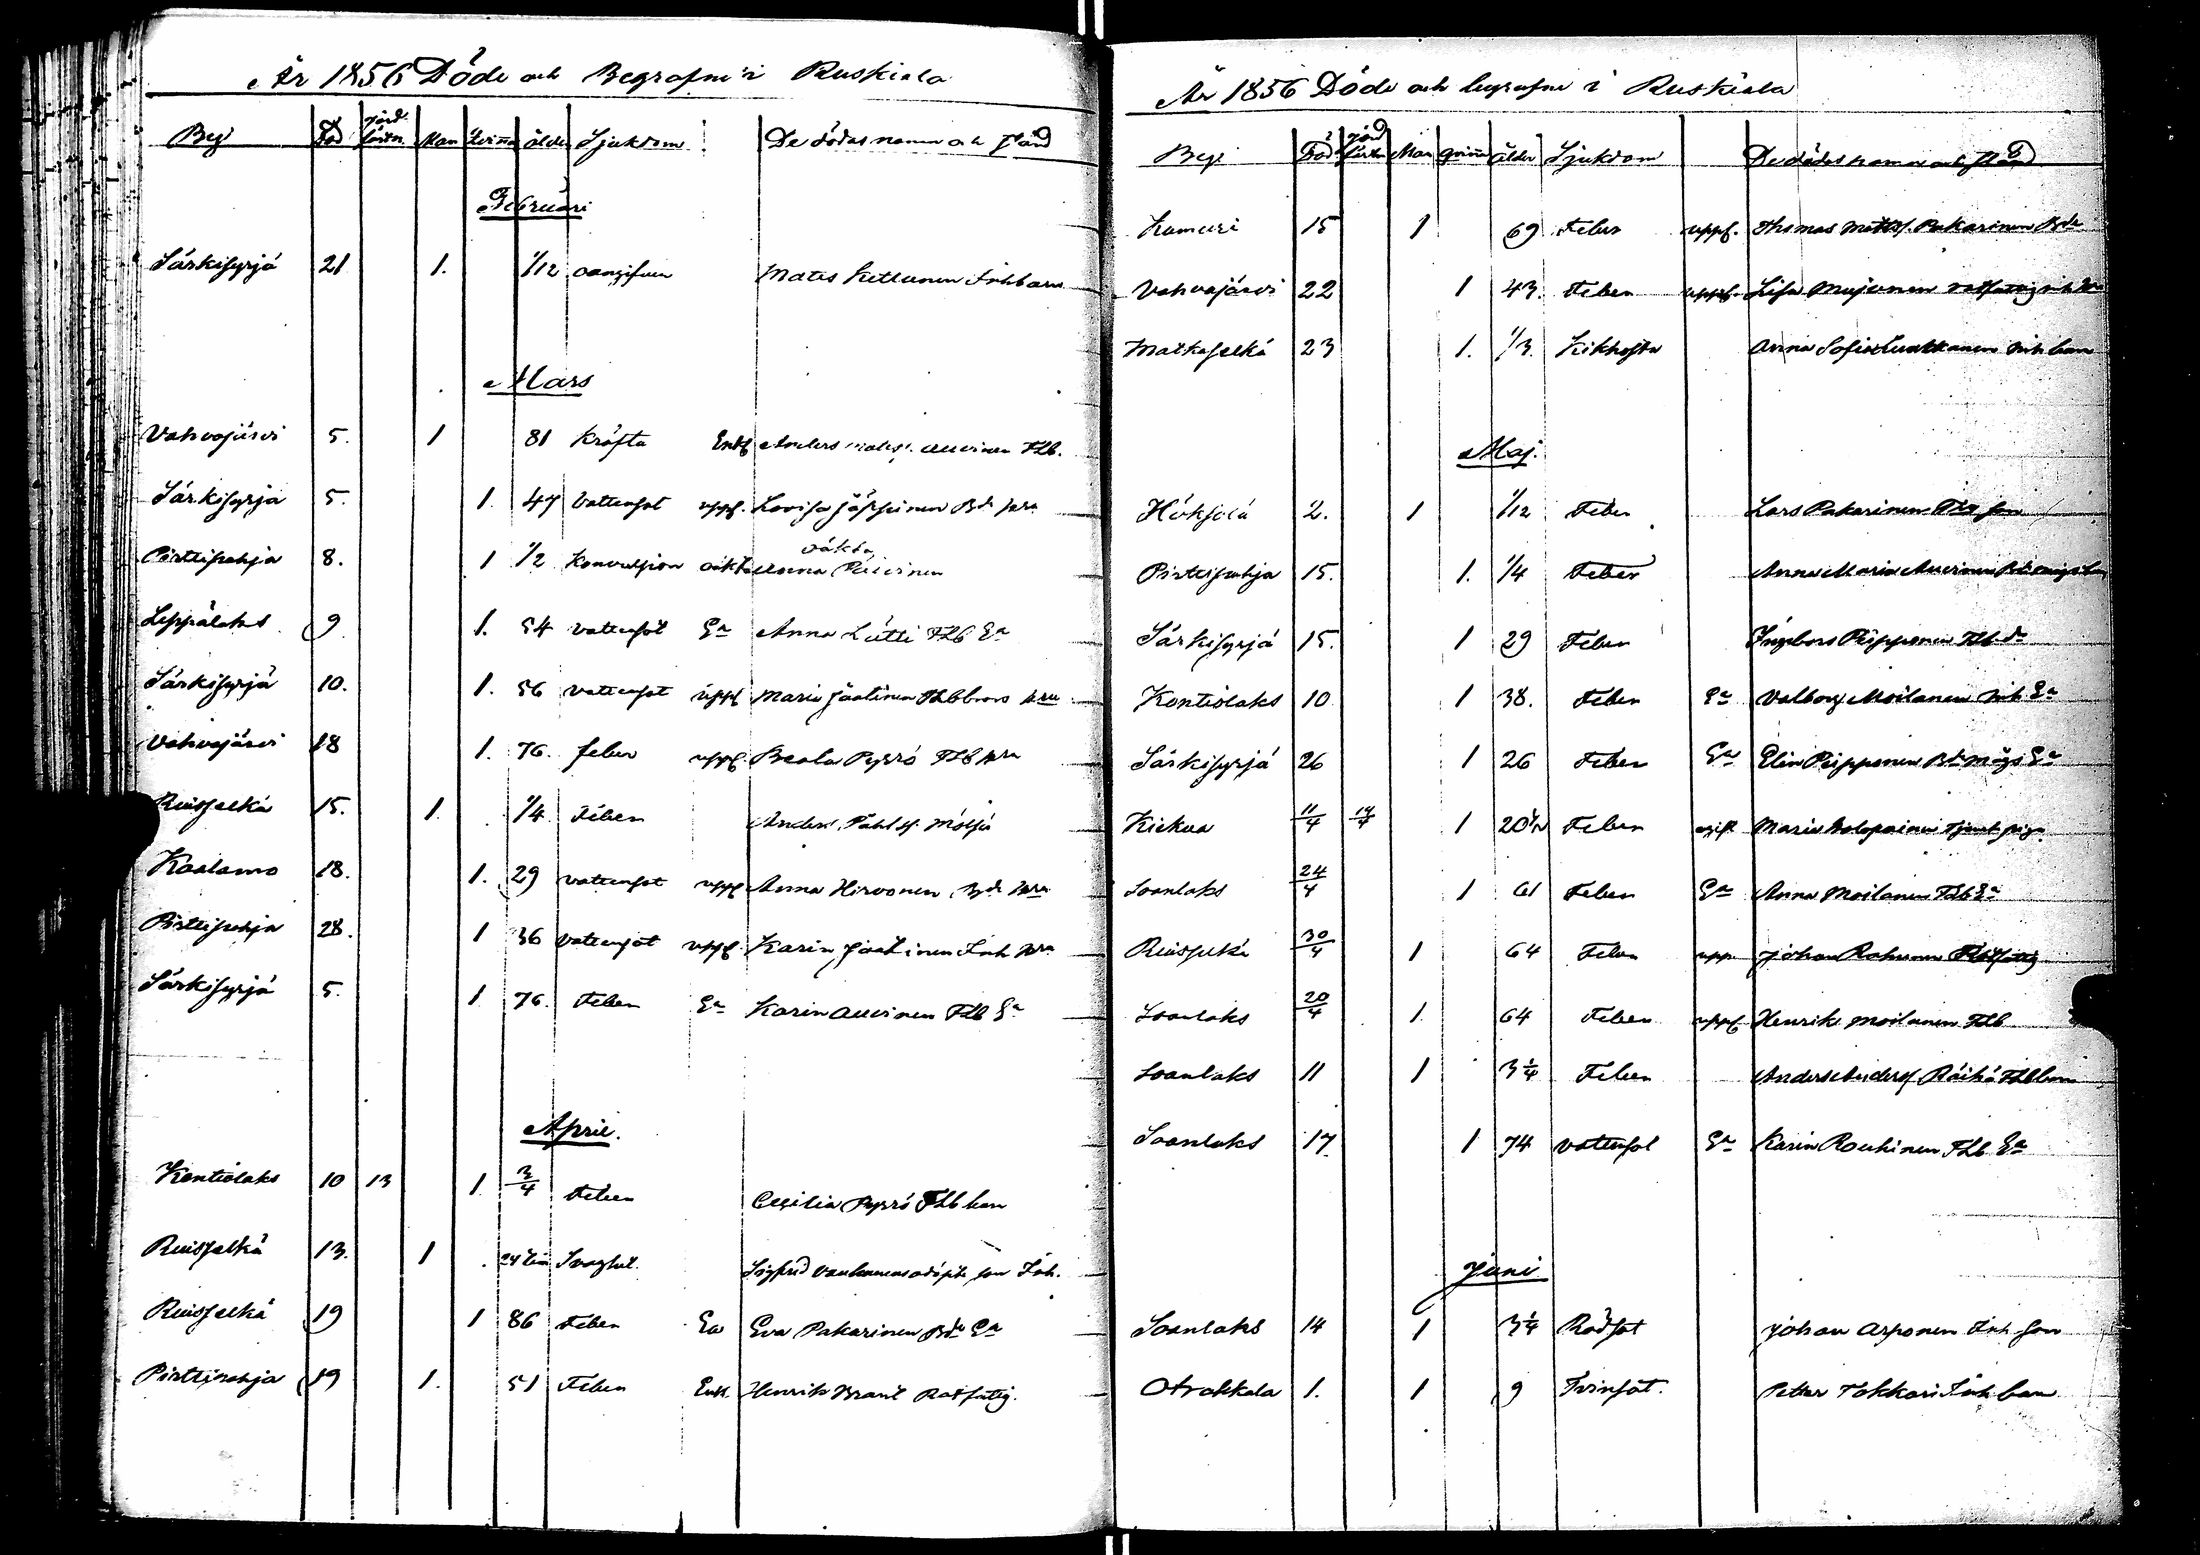 År 1856 Döde och Begrafne i Ruskiala
By Död Jord fästn. Man Qvinna Ålder Sjukdom De dödas namn och stånd
Februari
Särkisyrjä 21 1. 1/12 Mates Kettunen Inh barn
Mars
Vahvajärvi 5. 1 81 Kräfta Enkl Anders Auvinen FLb.
Särkisyrjä 5. 1. 47 Vattusot uppf. Lovisa Jäppinen Bde hru
Pirttipohja 8. 1 1/2 Konvulsion oäkta Anna
Leppälaks 9 1. 54 vattusot Ea Anna Lätti FLb Ea
Särkisyrjä 10. 1. 56 vattusot uppf Maria Jaatinen FLb hru
Vahvajärvi 18 1. 76. feber uppf. Beata Pyrrö FLb hru
Ruisselkä 15. 1. 1/4 Feber Anders
Kaalamo 18. 1. 29 vattusot uppf Anna Hirvonen Bde hru
Pirttipohja 28. 1 36 vattusot uppf. Karin Jaatinen Inh hru
Särkisyrjä 5. 1 76. Feber Ea Karin Auvinen FLb Ea
April.
Kontiolaks 10 13 1 3/4 Feber Cecilia Pyrrö FLb barn
Ruisselkä 13. 1 24 tim Svaghet. Sigfrid son Inh.
Ruisselkä 19 1 86 Feber Ea Eva Pakarinen Bde Ea
Pirttipohja 19 1. 51 Feber Enkl. Henrik Brant Rotfattig.
År 1856 Döde och begrafne i Ruskiala
By Död Jord fästn Man Qvinna Ålder Sjukdom De dödas namn och stånd
Kumuri 15 1 69 Feber uppf. Thomas Matts. Pakarinen Bde
Vahvajärvi 22 1 43. Feber uppf. Lisa Mujunen
Matkaselkä 23 1. 1/3. Kikhosta Anna Sofia Inh barn
Maj.
Höksölä 2. 1 1/12 Feber Lars Pakarinen son
Pirttipohja 15. 1. 1/4 Feber Anna Maria Auvinen
Särkisyrjä 15. 1 29 Feber Ingebors Piipponen FLb dr
Kontiolaks 10 1 38. Feber Ea Valborg Moilanen Inh Ea
Särkisyrjä 26 1 26 Feber Ea Elin Piipponen Bde mågs Ea
Kiekua 11/4 14/4 1 20 1/2 Feber ogift Maria Holopainen Tjenst piga
Soanlaks 24/4 1 61 Feber Ea Anna Moilanen FLb Ea
Ruisselkä 30/4 1 64 Feber upp Johan Rahunen Rotfattig
Soanlaks 20/4 1 64 Feber uppf Henrik Moilanen FLb
Soanlaks 11 1 3 1/4 Feber Anders Anders. Räikä FLb barn
Soanlaks 17 1 74 vattusot Ea Karin Rouhinen FLb Ea
Juni
Soanlaks 14 1 3 1/4 Rödsot Johan Asponen Inh son
Otrakkala 1. 1 9 Tvinsot. Petter Tokkari Inh barn